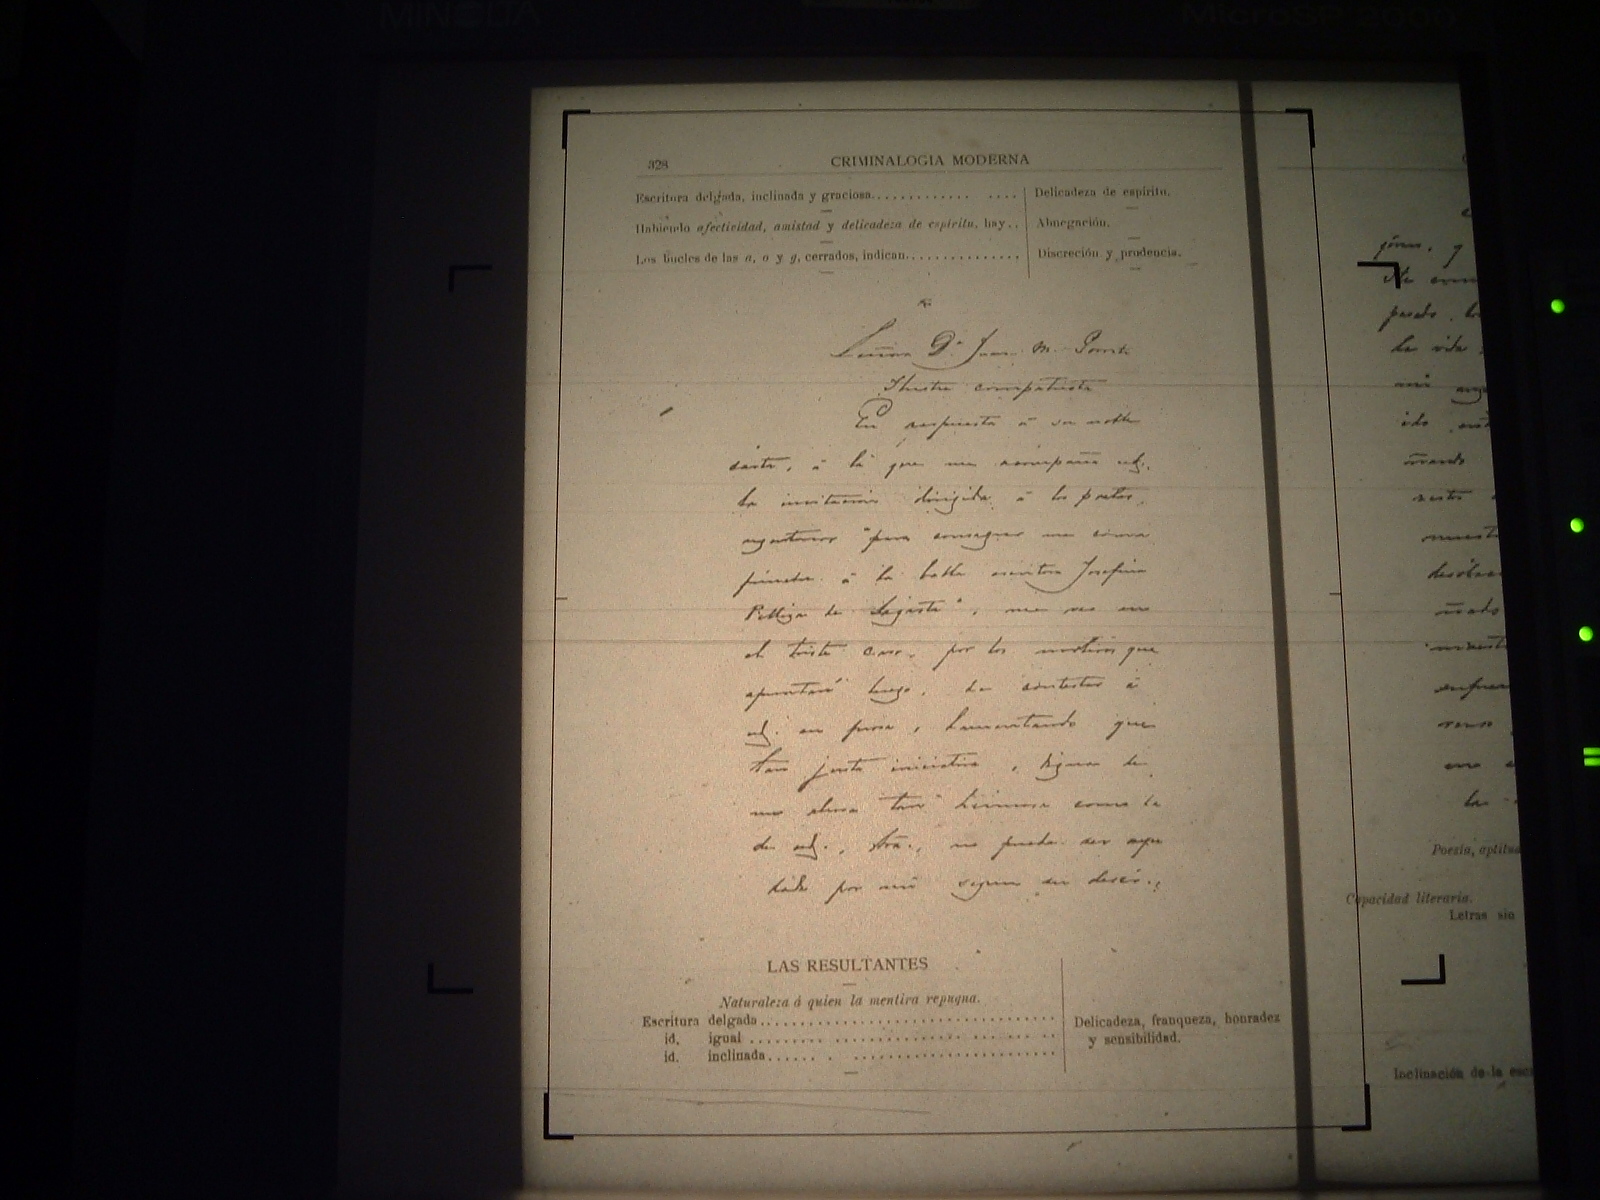 MINOLTA
MicroSP 2000
328
CRIMINALOGIA MODERNA
Escritura delgada, inclinada y graciosa
Delicadeza de espíritu.
Habiendo afectividad, amistad y delicadeza de espíritu, hay..
Abnegación.
Los bucles de las a, o y g, cerrados, indican
Discreción y prudencia.
Señora Da Juan M.
Ilustre compatriota
En respuesta á su noble
carta, á la que me acompaña ud.
la invitación dirigida á los poetas
argentinos "para consagrar una corona
fúnebre á la bella escritora Josefina
Pelliza de Sagasta", me veo en
el triste caso, por los motivos que
apuntaré luego, de contestar á
ud. en prosa, lamentando que
tan justa iniciativa, digna de
una alma tan hermosa como la
de ud., Sra., no pueda ser
por mí segun su deseo.
LAS RESULTANTES
Naturaleza á quien la mentira repugna.
Escritura delgada
id. igual
id. inclinada
Delicadeza, franqueza, honradez
y sensibilidad.
y
pasado
la vida
mi
ido
nuestro
verso
la
Poesía,
Capacidad literaria.
Letras sin
Inclinación de la